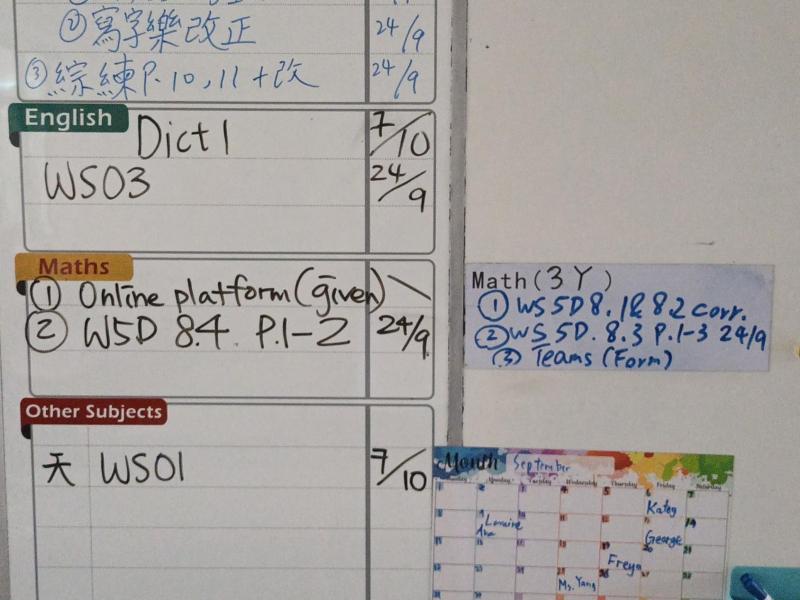 ② 寫字樂改正 24/9
③ 綜練P.10,11+改 24/9
English
Dict 1 7/10
WS03 24/9
Maths
① Online platform (given) \
② W5D 8.4 P.1-2 24/9
Math(3Y)
① WS 5D 8.1&8.2 corr.
② WS 5D.8.3 P.1-3 24/9
③ Teams (Form)
Other Subjects
天 WS01 7/10
Month September
Monday Tuesday Wednesday Thursday Friday Saturday
Katey
Lorraine
George
Freya
Ms. Yang